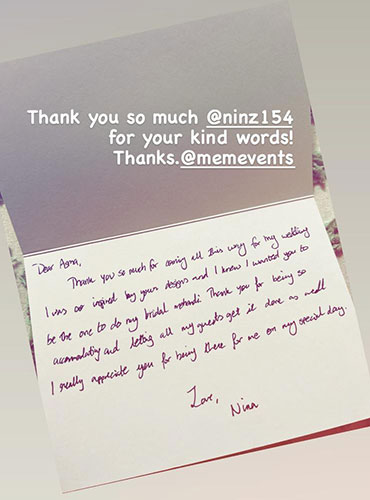 Thank you so much @ninz154
for your kind words!
Thanks.@memevents
Dear Asma,
Thank you so much for coming all this way for my wedding
I was so inspired by your designs and I knew I wanted you to
be the one to do my bridal mehndi. Thank you for being so
accommodating and letting all my guests get it done as well
I really appreciate you for being there for me on my special day.
Love,
Nina